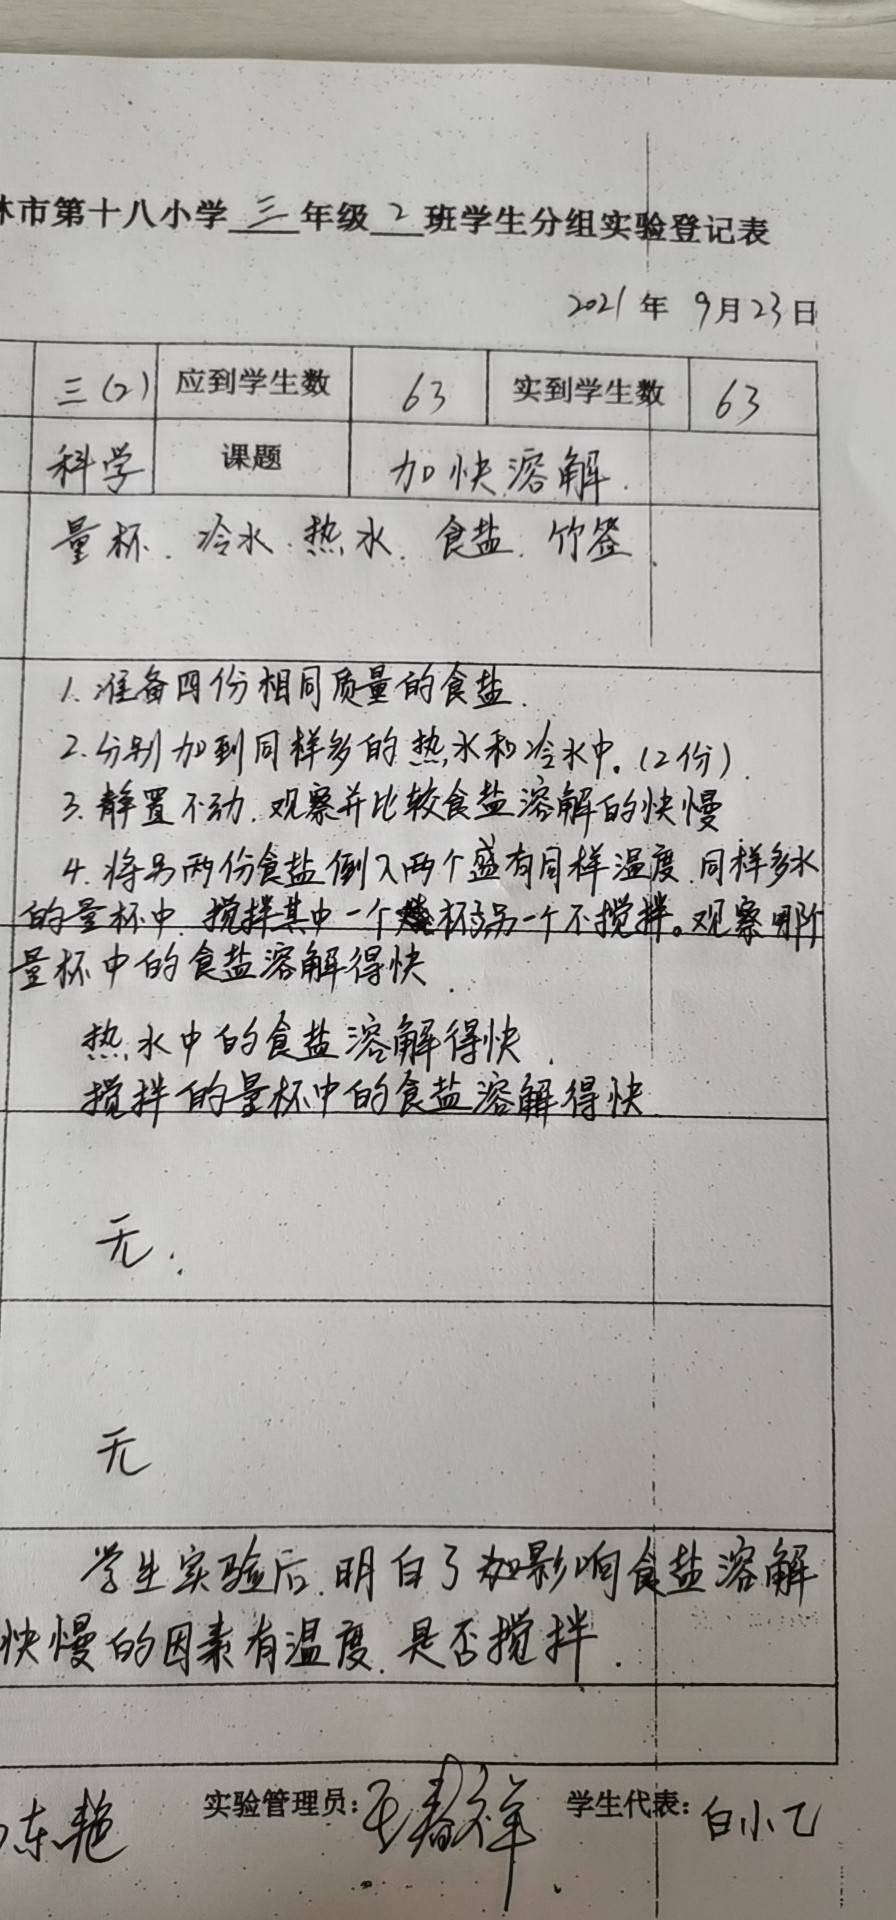 市第十八小学 三 年级 2 班学生分组实验登记表
2021年 9月23日
三(2) 应到学生数 63 实到学生数 63
科学 课题 加快溶解.
量杯、冷水、热水、食盐、竹签.
1. 准备四份相同质量的食盐.
2. 分别加到同样多的热水和冷水中。(2份).
3. 静置不动,观察并比较食盐溶解的快慢
4. 将另两份食盐倒入两个盛有同样温度、同样多水
的量杯中,搅拌其中一个杯子另一个不搅拌。观察哪个
量杯中的食盐溶解得快.
热水中的食盐溶解得快.
搅拌的量杯中的食盐溶解得快.
无.
无
学生实验后,明白了影响食盐溶解
快慢的因素有温度、是否搅拌.
东艳 实验管理员: 学生代表: 白小乙